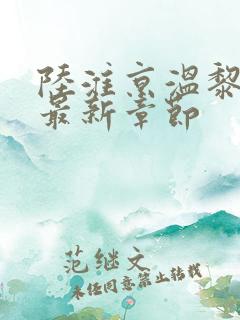 陸淮京溫黎
最新章節
范继文
未经同意禁止转载